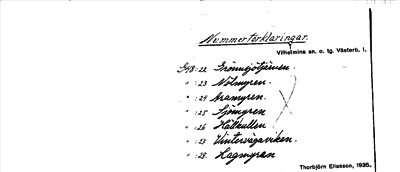 Nummerförklaringar.
Vilhelmina sn. o. tg. Västerb. l.
948:22 Grönmyrtjärnen.
" :23 Nölmyren.
" :24 Aramyren.
" :25 Sjömyren.
" :26 Hällkullen
" :27 Vintervägaviken.
" :28. Hagmyran
Thorbjörn Eliasson, 1935.